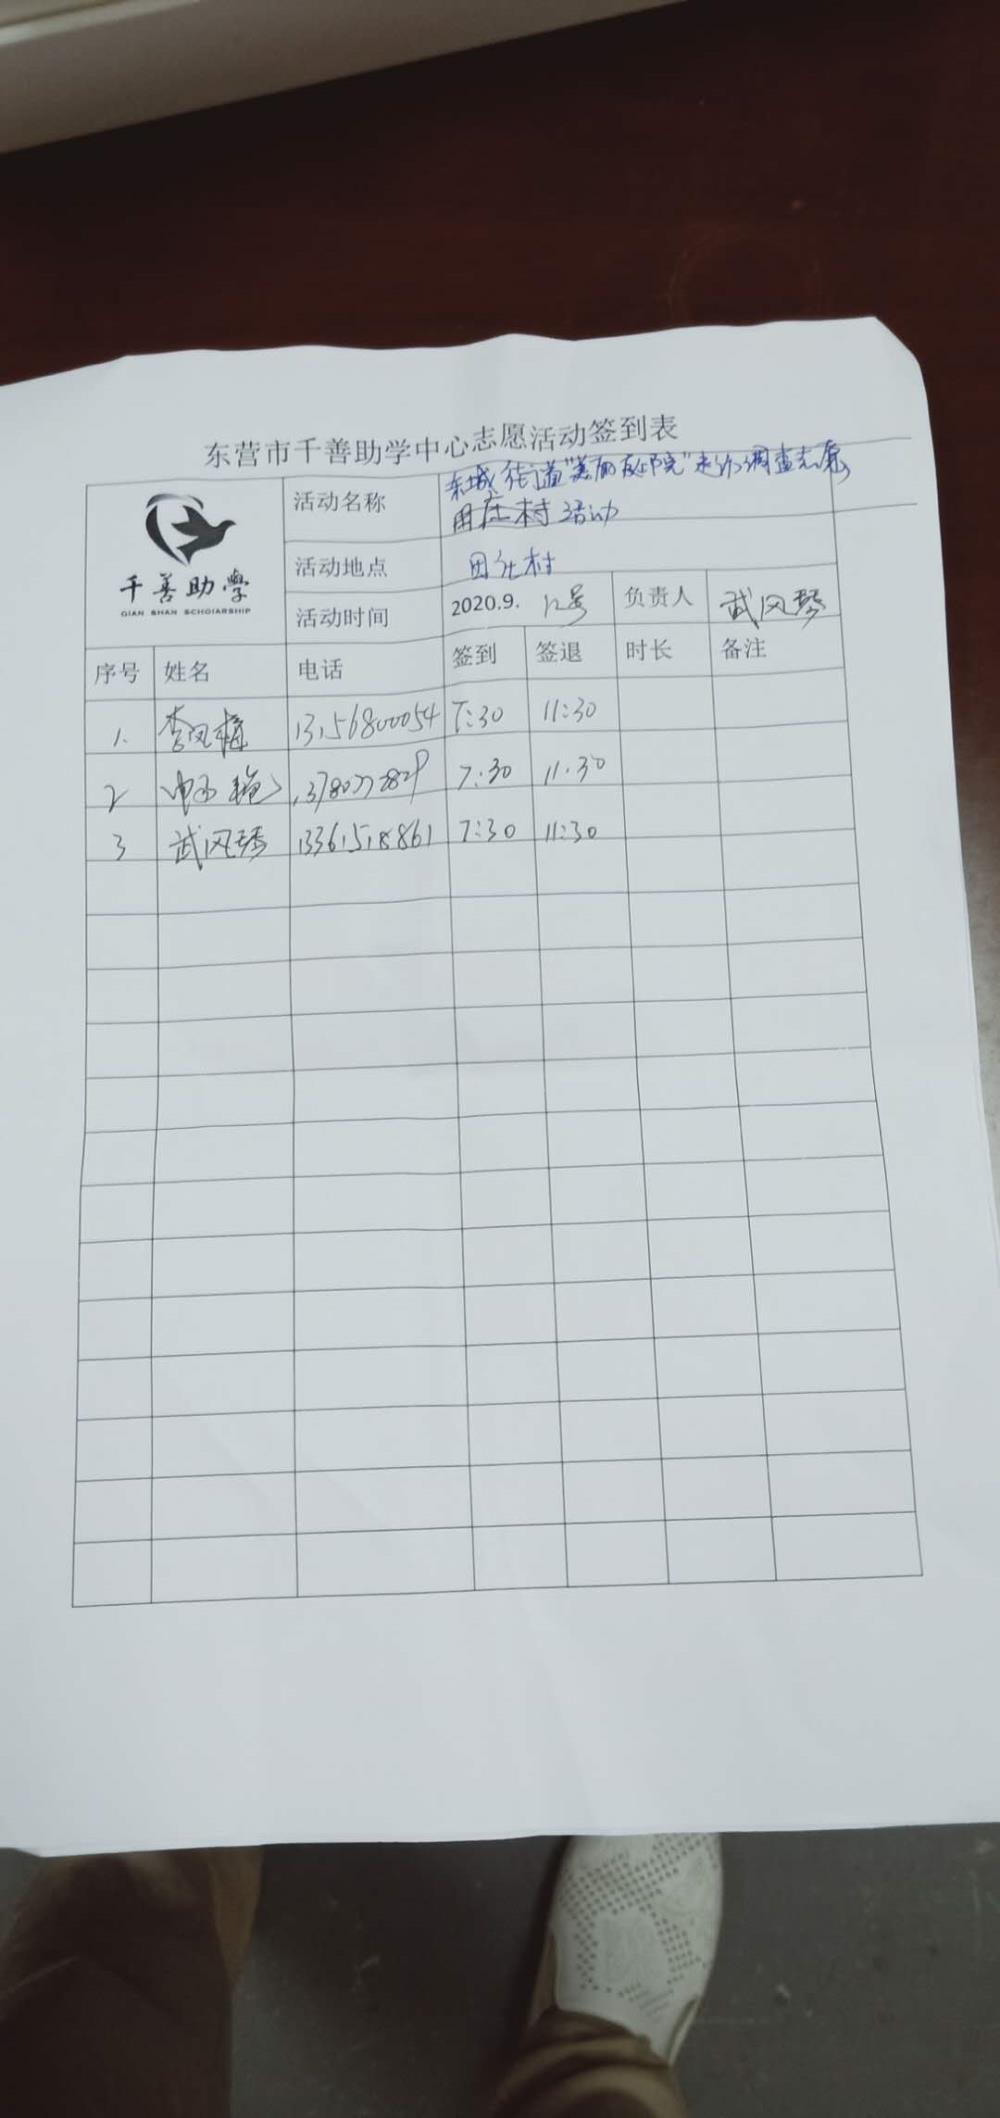 东营市千善助学中心志愿活动签到表
千善助學
QIAN SHAN SCHOIARSHIP
活动名称 东城街道"美丽庭院"走访调查志愿
田庄村活动
活动地点 田庄村
活动时间 2020.9. 12号 负责人 武风琴
序号 姓名 电话 签到 签退 时长 备注
1. 李风梅 13156800054 7:30 11:30
2 7:30 11:30
3 武风琴 13361518861 7:30 11:30